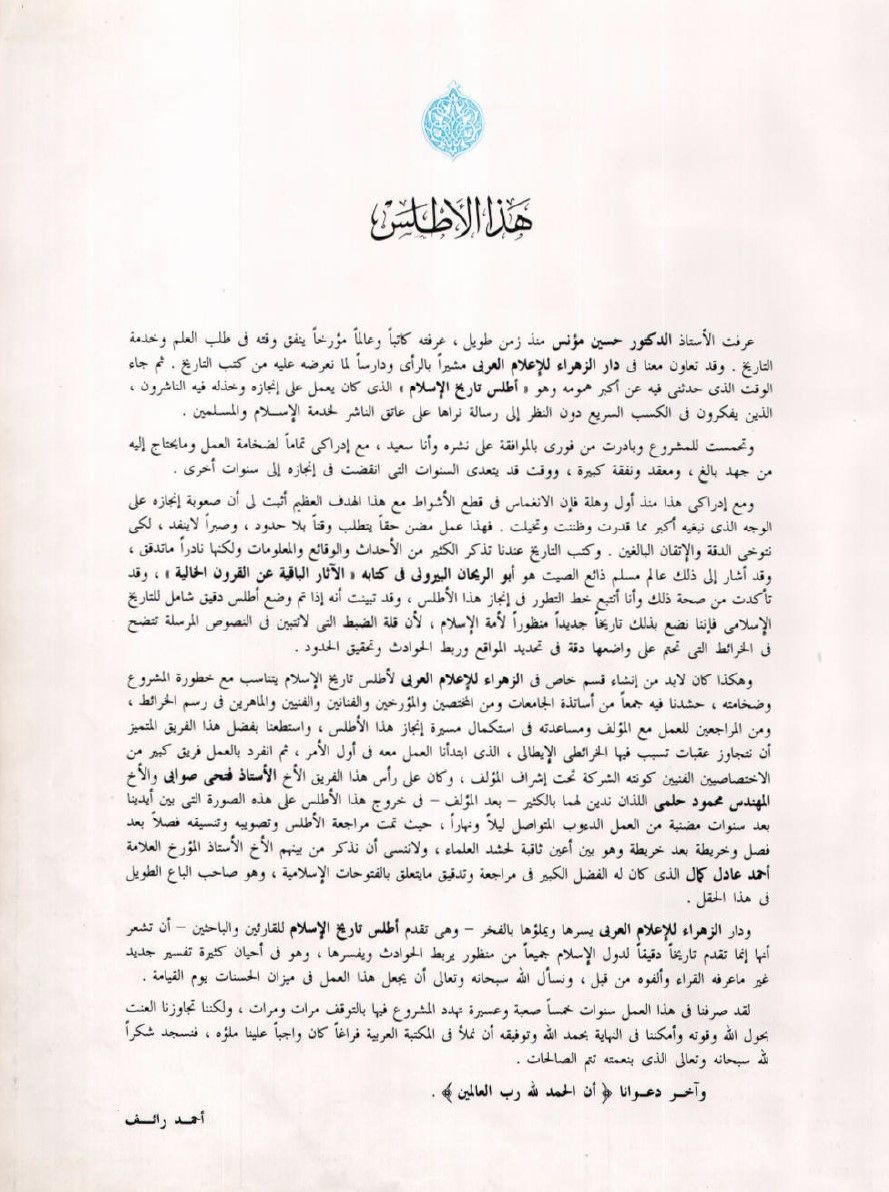 هذا الأطلس
عرفت الأستاذ الدكتور حسين مؤنس منذ زمن طويل ، عرفته كاتباً وعالماً مؤرخاً ينفق وقته فى طلب العلم وخدمة
التاريخ . وقد تعاون معنا فى دار الزهراء للإعلام العربى مشيراً بالرأى ودارساً لما نعرضه عليه من كتب التاريخ . ثم جاء
الوقت الذى حدثنى فيه عن أكبر همومه وهو « أطلس تاريخ الإسلام » الذى كان يعمل على إنجازه وخذله فيه الناشرون ،
الذين يفكرون فى الكسب السريع دون النظر إلى رسالة نراها على عاتق الناشر لخدمة الإسلام والمسلمين .
وتحمست للمشروع وبادرت من فورى بالموافقة على نشره وأنا سعيد ، مع إدراكى تماماً لضخامة العمل ومايحتاج إليه
من جهد بالغ ، ومعقد ونفقة كبيرة ، ووقت قد يتعدى السنوات التى انقضت فى إنجازه إلى سنوات أخرى .
ومع إدراكى هذا منذ أول وهلة فإن الانغماس فى قطع الأشواط مع هذا الهدف العظيم أثبت لى أن صعوبة إنجازه على
الوجه الذى نبغيه أكبر مما قدرت وظننت وتخيلت . فهذا عمل مضن حقاً يتطلب وقتاً بلا حدود ، وصبراً لاينفد ، لكى
نتوخى الدقة والإتقان البالغين . وكتب التاريخ عندنا تذكر الكثير من الأحداث والوقائع والمعلومات ولكنها نادراً ماتدقق ،
وقد أشار إلى ذلك عالم مسلم ذائع الصيت هو أبو الريحان البيرونى فى كتابه « الآثار الباقية عن القرون الخالية » ، وقد
تأكدت من صحة ذلك وأنا أتتبع خط التطور فى إنجاز هذا الأطلس ، وقد تبينت أنه إذا تم وضع أطلس دقيق شامل للتاريخ
الإسلامى فإننا نضع بذلك تاريخاً جديداً منظوراً لأمة الإسلام ، لأن قلة الضبط التى لاتتبين فى النصوص المرسلة تتضح
فى الخرائط التى تحتم على واضعها دقة فى تحديد المواقع وربط الحوادث وتحقيق الحدود .
وهكذا كان لابد من إنشاء قسم خاص فى الزهراء للإعلام العربى لأطلس تاريخ الإسلام يتناسب مع خطورة المشروع
وضخامته ، حشدنا فيه جمعاً من أساتذة الجامعات ومن المختصين والمؤرخين والفنانين والفنيين والماهرين فى رسم الخرائط ،
ومن المراجعين للعمل مع المؤلف ومساعدته فى استكمال مسيرة إنجاز هذا الأطلس ، واستطعنا بفضل هذا الفريق المتميز
أن نتجاوز عقبات تسبب فيها الخرائطى الإيطالى ، الذى ابتدأنا العمل معه فى أول الأمر ، ثم انفرد بالعمل فريق كبير من
الاختصاصيين الفنيين كونته الشركة تحت إشراف المؤلف ، وكان على رأس هذا الفريق الأخ الأستاذ فتحى صوابى والأخ
المهندس محمود حلمى اللذان ندين لهما بالكثير – بعد المؤلف – فى خروج هذا الأطلس على هذه الصورة التى بين أيدينا
بعد سنوات مضنية من العمل الدءوب المتواصل ليلاً ونهاراً ، حيث تمت مراجعة الأطلس وتصويبه وتنسيقه فصلاً بعد
فصل وخريطة بعد خريطة وهو بين أعين ثاقبة لحشد العلماء ، ولاننسى أن نذكر من بينهم الأخ الأستاذ المؤرخ العلامة
أحمد عادل كمال الذى كان له الفضل الكبير فى مراجعة وتدقيق مايتعلق بالفتوحات الإسلامية ، وهو صاحب الباع الطويل
فى هذا الحقل .
ودار الزهراء للإعلام العربى يسرها ويملؤها بالفخر – وهى تقدم أطلس تاريخ الإسلام للقارئين والباحثين – أن تشعر
أنها إنما تقدم تاريخاً دقيقاً لدول الإسلام جميعاً من منظور يربط الحوادث ويفسرها ، وهو فى أحيان كثيرة تفسير جديد
غير ماعرفه القراء وألفوه من قبل ، ونسأل الله سبحانه وتعالى أن يجعل هذا العمل فى ميزان الحسنات يوم القيامة .
لقد صرفنا فى هذا العمل سنوات خمساً صعبة وعسيرة تهدد المشروع فيها بالتوقف مرات ومرات ، ولكننا تجاوزنا العنت
بحول الله وقوته وأمكننا فى النهاية بحمد الله وتوفيقه أن نملأ فى المكتبة العربية فراغاً كان واجباً علينا ملؤه ، فنسجد شكراً
لله سبحانه وتعالى الذى بنعمته تتم الصالحات .
وآخر دعوانا ﴿ أن الحمد لله رب العالمين ﴾ .
أحمد رائف